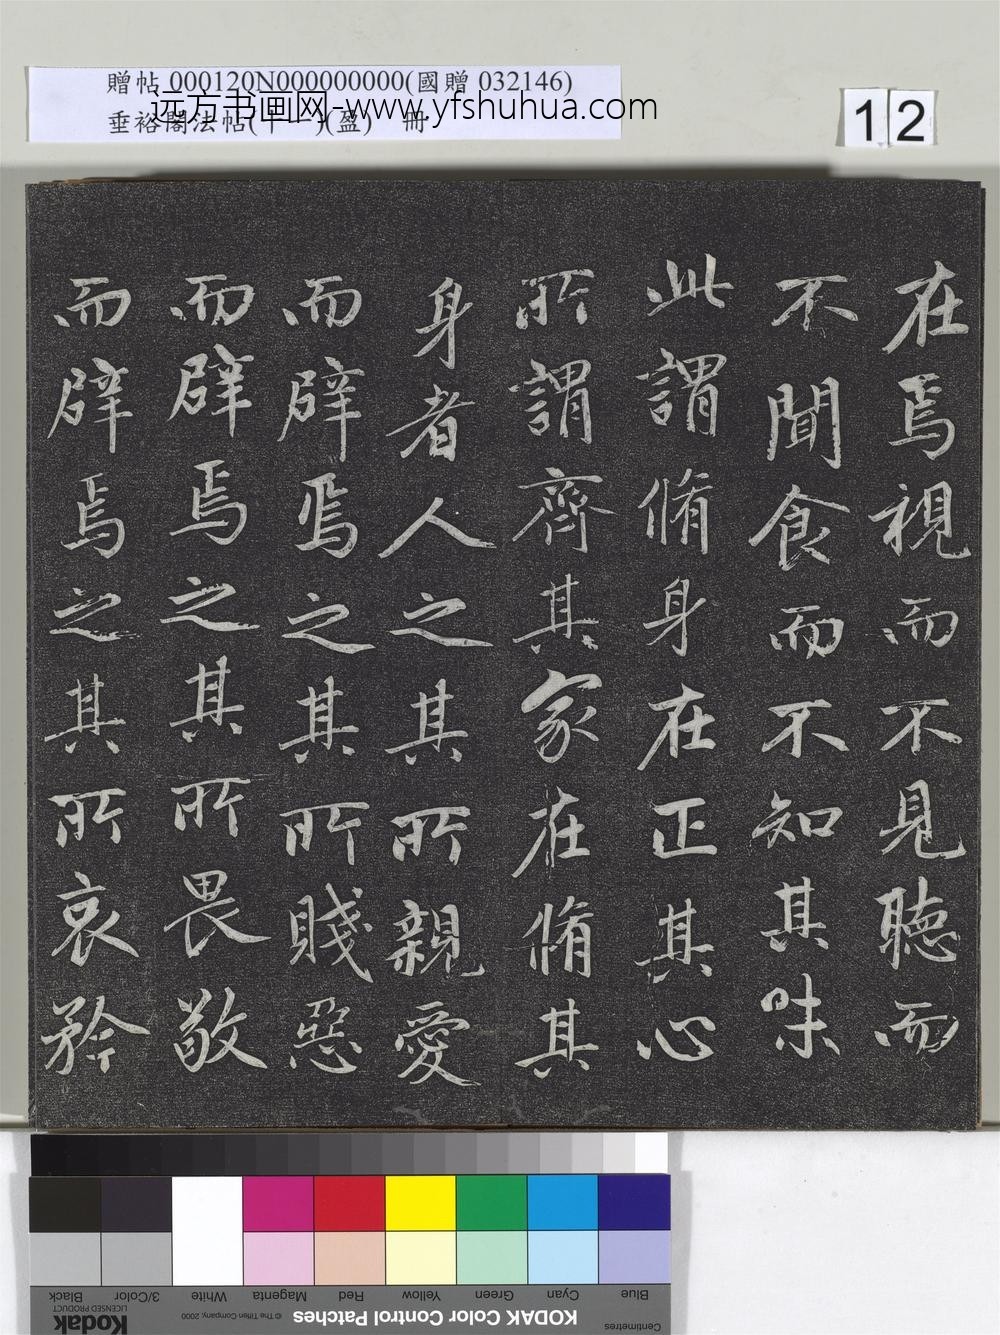 贈帖 000120N000000000(國贈 032146)
远方书画网-www.yfshuhua.com
垂裕閣法帖(十一)(盈) 冊
12
在焉視而不見聽而
不聞食而不知其味
此謂脩身在正其心
所謂齊其家在脩其
身者人之其所親愛
而辟焉之其所賤惡
而辟焉之其所畏敬
而辟焉之其所哀矜
Black
3/Color
White
Magenta
Red
Yellow
Green
Cyan
Blue
Kodak
LICENSED PRODUCT
© The Tiffen Company, 2000
KODAK Color Control Patches
Centimetres